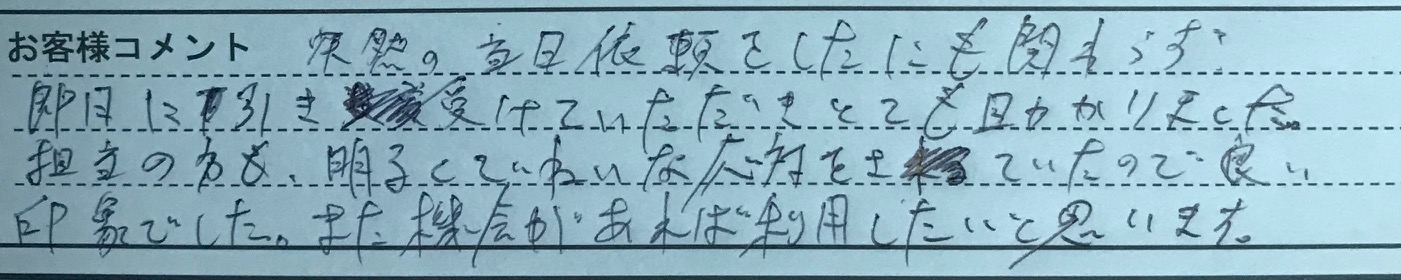 お客様コメント 突然の当日依頼をしたにも関わらず、
即日に引き受けていただきとても助かりました。
担当の方も、明るくていねいな応対をされていたので良い
印象でした。また機会があれば利用したいと思います。